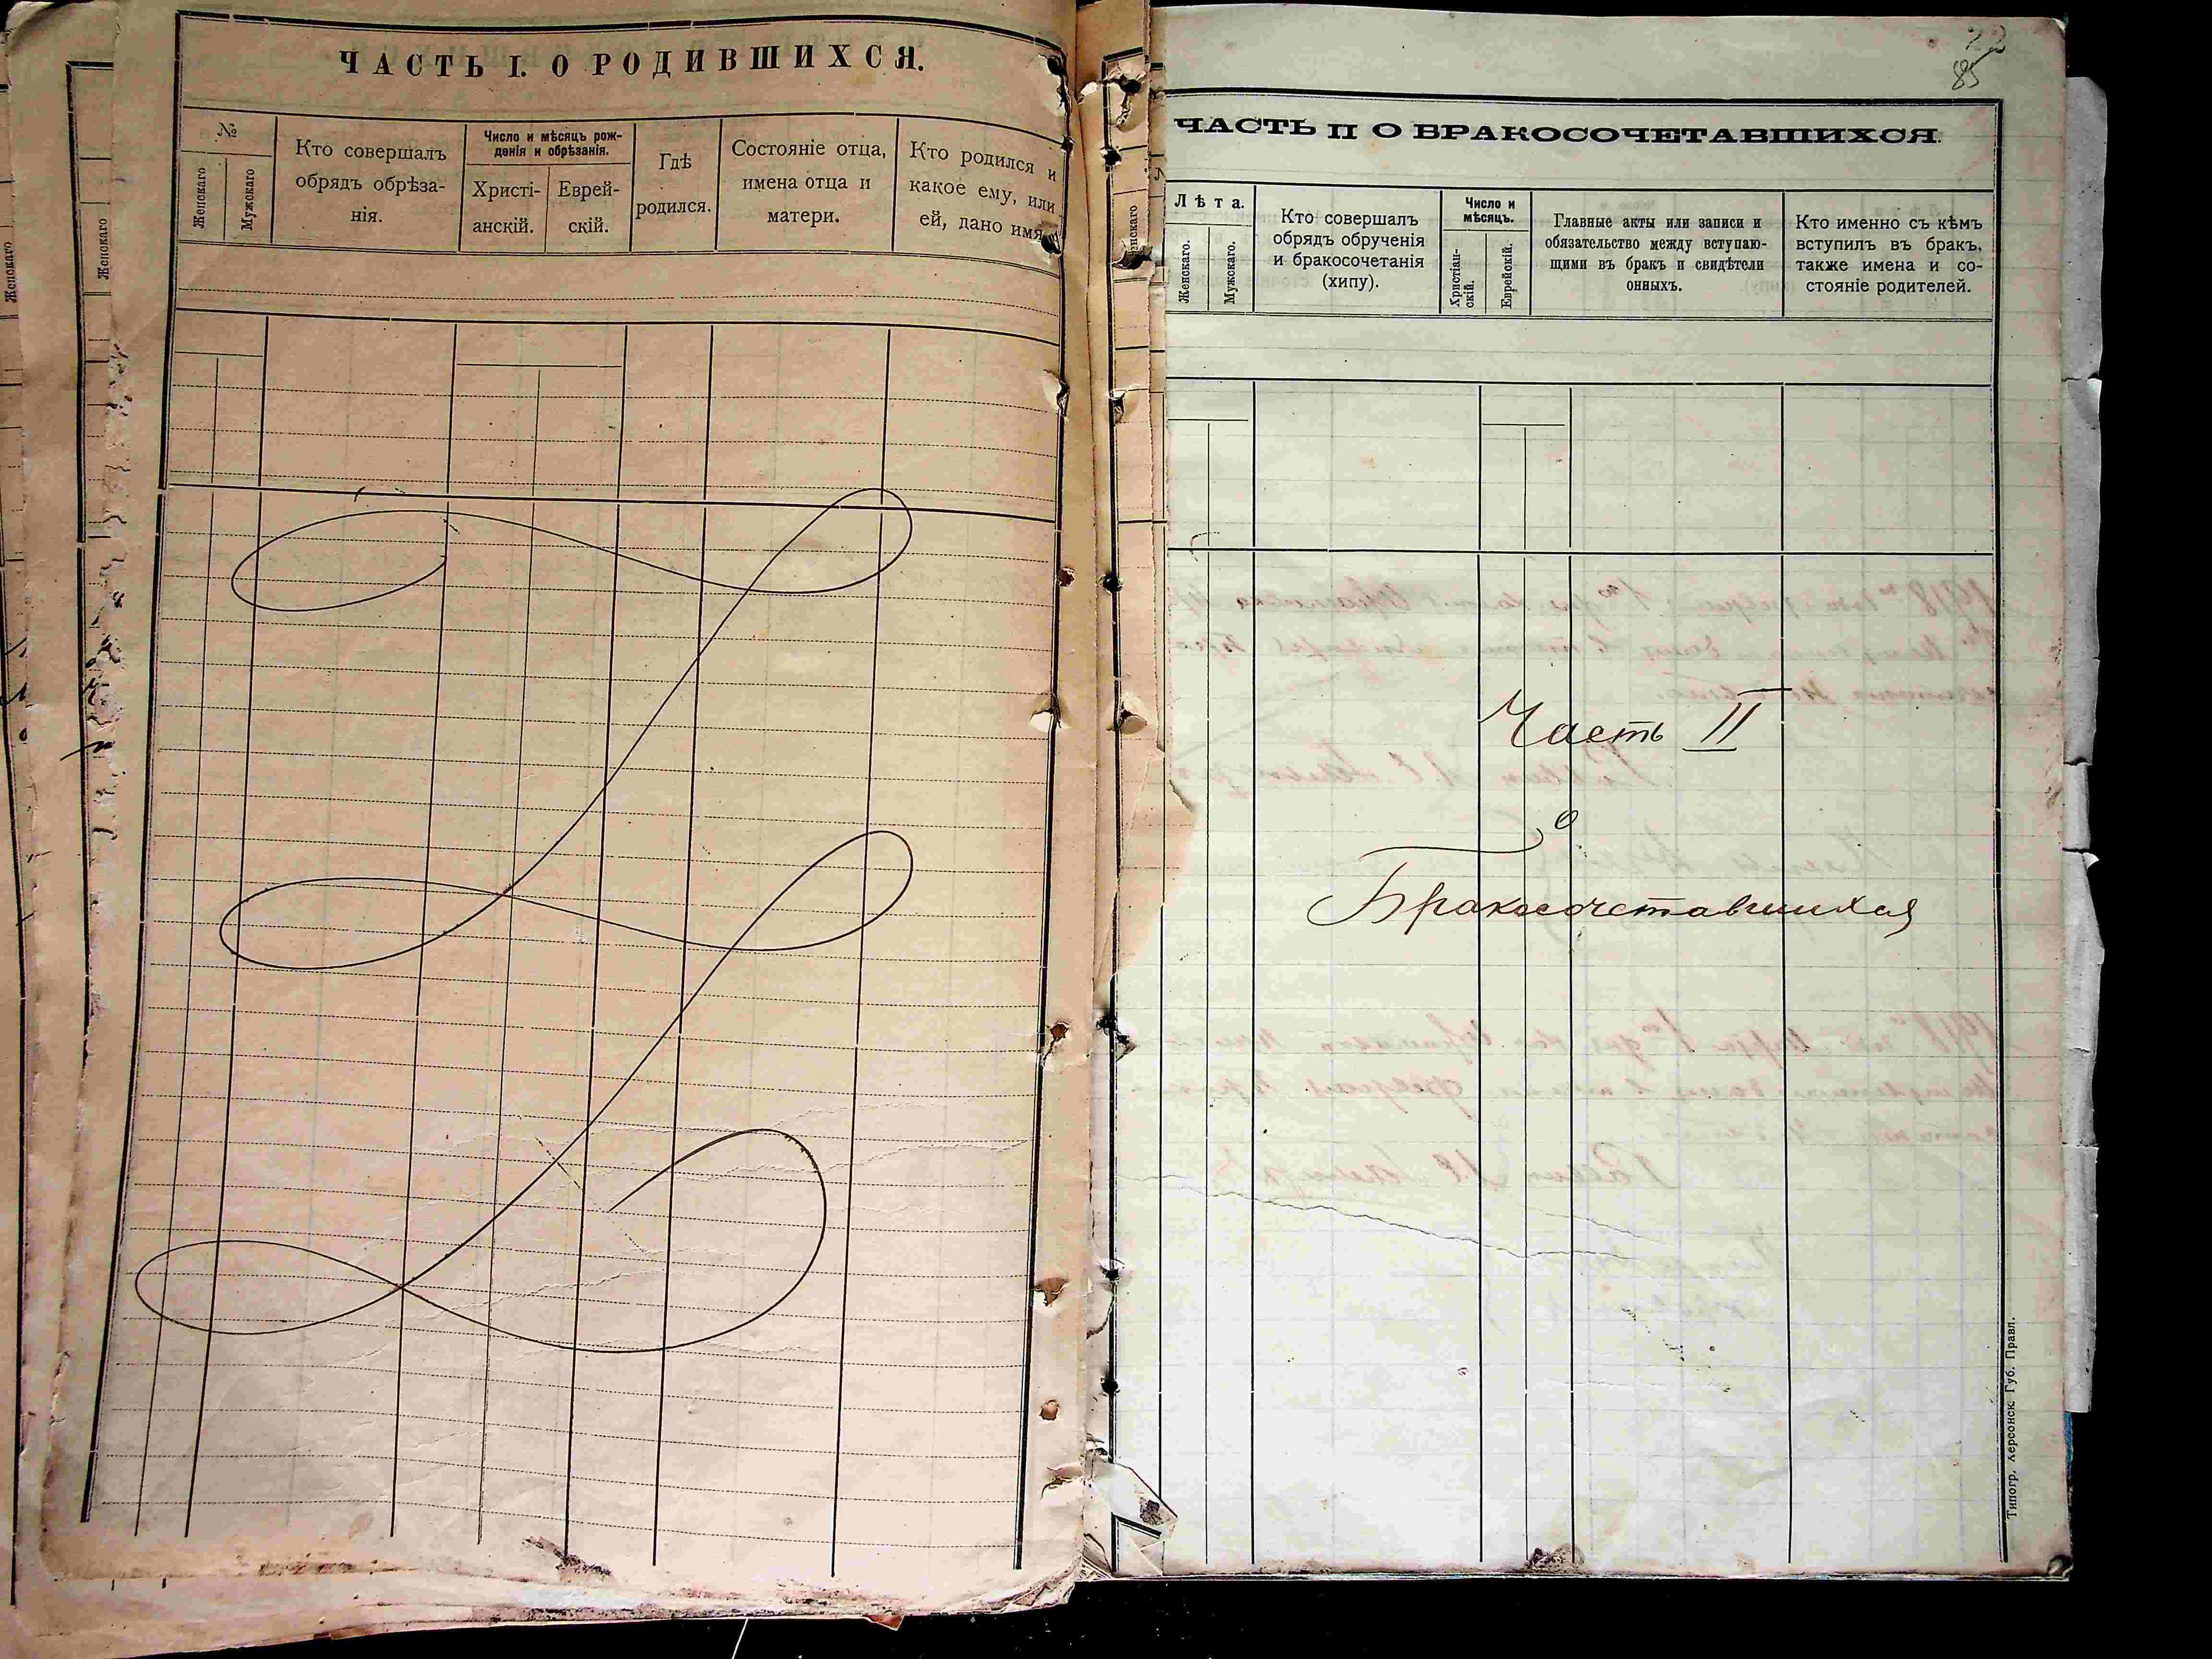 ЧАСТЬ I. О РОДИВШИХСЯ.
№
Женскаго
Мужскаго
Кто совершалъ
обрядъ обрѣза-
нія.
Число и мѣсяцъ рож-
денія и обрѣзанія.
Христі-
анскій.
Еврей-
скій.
Гдѣ
родился.
Состояніе отца,
имена отца и
матери.
Кто родился и
какое ему, или
ей, дано имя
Женскаго
Женскаго
22
85
ЧАСТЬ II О БРАКОСОЧЕТАВШИХСЯ.
Лѣта.
Женскаго.
Мужскаго.
Кто совершалъ
обрядъ обрученія
и бракосочетанія
(хипу).
Число и
мѣсяцъ.
Христіан-
скій.
Еврейскій.
Главные акты или записи и
обязательство между вступаю-
щими въ бракъ и свидѣтели
онныхъ.
Кто именно съ кѣмъ
вступилъ въ бракъ,
также имена и со-
стояніе родителей.
Часть II
о
Бракосочетавшихся
Типогр. Херсонск. Губ. Правл.